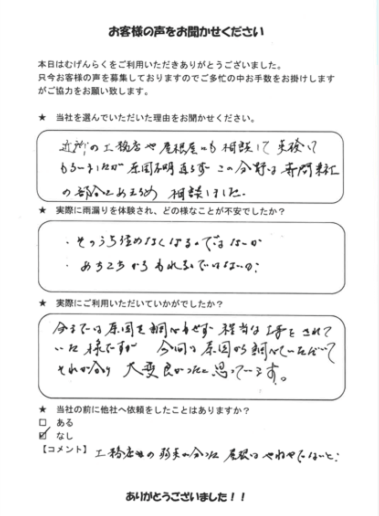 お客様の声をお聞かせください
本日はむげんらくをご利用いただきありがとうございました。
只今お客様の声を募集しておりますのでご多忙の中お手数をお掛けします
がご協力をお願い致します。
★ 当社を選んでいただいた理由をお聞かせください。
近所の工務店や屋根屋にも相談して見積して
もらいましたが原因不明 この分野は専門業社
の部分 相談しました。
★ 実際に雨漏りを体験され、どの様なことが不安でしたか？
・そのうち住めなくなるのではないか
・あちこちからもれるのではないか?
★ 実際にご利用いただいていかがでしたか？
今までは原因も調べもせず 相当な工事をされて
いた様ですが 今回は原因から調べていただいて
それが分り 大変良かったと思っています。
★ 当社の前に他社へ依頼をしたことはありますか？
□ ある
☑ なし
【コメント】 工務店
ありがとうございました！！